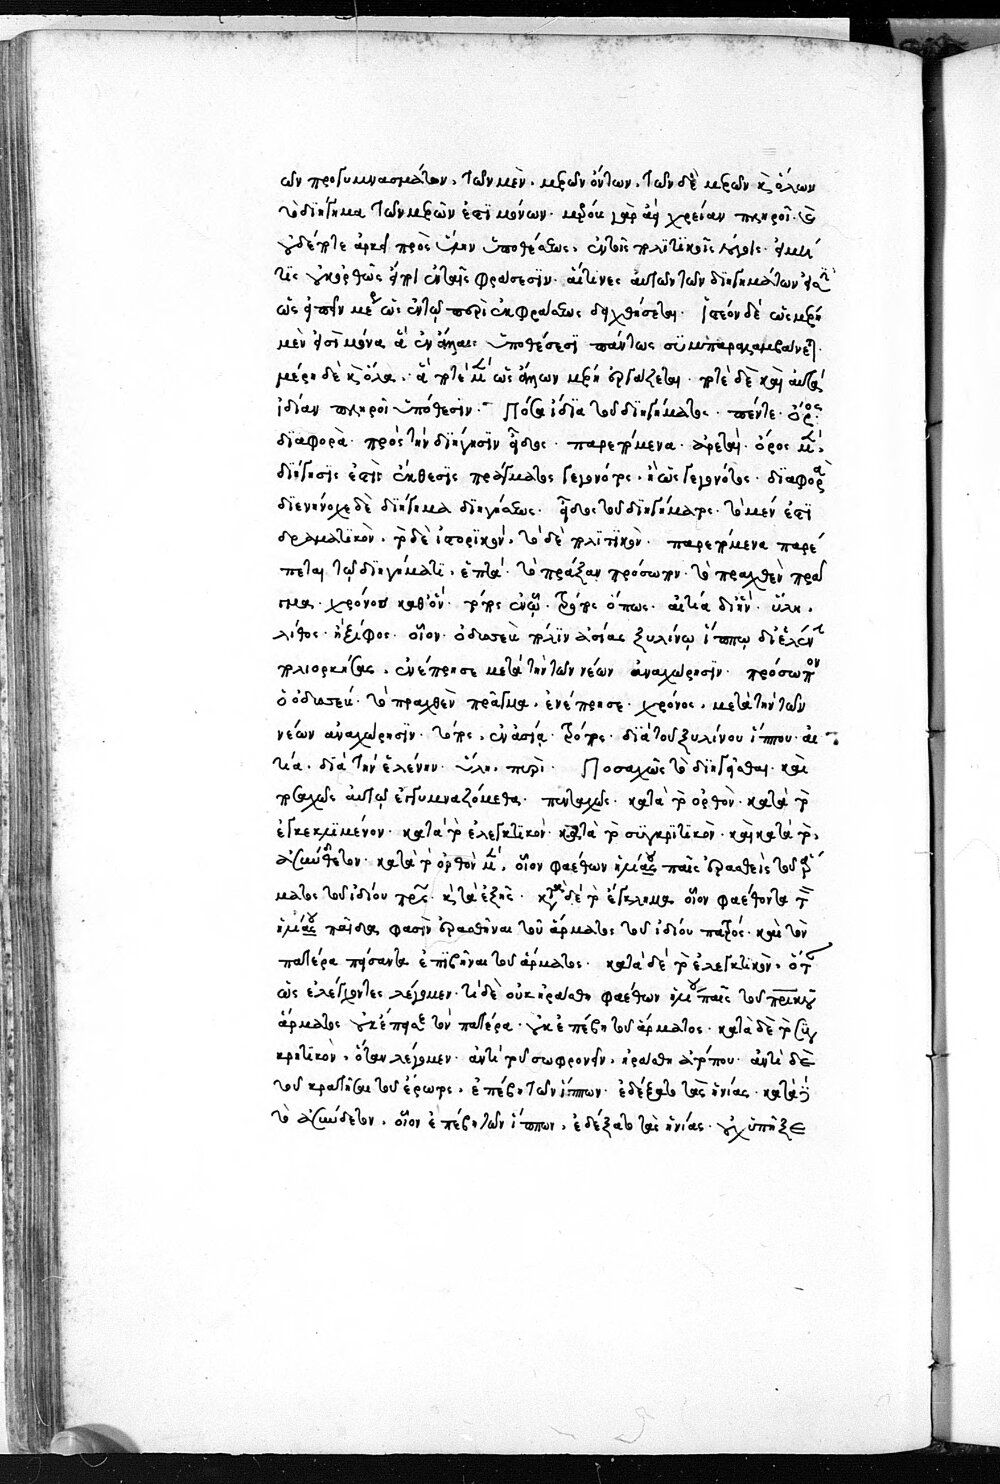 ων προγυμνασμάτων, τῶν μὲν, μερῶν ὄντων, τῶν δὲ μερῶν κ ὅλων
τὸ διήγημα τῶν μερῶν ἐστὶ μόνων. μέρους γὰρ ἀεὶ χρείαν πληροῖ.
οὐδέποτε ἀρκεῖ πρὸς ὅλην ὑποθέσεως, ἐν τοῖς πολιτικοῖς λόγοις.
ἐν ταῖς φράσεσιν. αἵτινες αὐτῶν τῶν διηγημάτων
ὡς ἐν τῷ περὶ ἐκφράσεως δειχθήσεται. ἰστέον δὲ ὡς μέρη
μὲν εἰσὶ μόνα ἃ ἐν ἄλλαις ὑποθέσεσι πάντως συμπαραλαμβάνεται.
μέρη δὲ κ ὅλα, ἃ ποτὲ μὲν ὡς ἄλλων μέρη ἐργάζεται. ποτὲ δὲ καὶ αὐτὰ
ἰδίαν πληροῖ ὑπόθεσιν. Πόσα ἴδια τοῦ διηγήματος. πέντε. ὅρος.
διαφορὰ. πρὸς τὴν διήγησιν εἶδος. παρεπόμενα. ἀρεταί. ὅρος μὲν,
διήγησις ἐστὶν ἔκθεσις πράγματος γεγονότος, ἢ ὡς γεγονότος. διαφορᾷ
διενήνοχε δὲ διήγημα διηγήσεως. εἶδος τοῦ διηγήματος. τὸ μέν ἐστι
δραματικὸν, τὸ δὲ ἱστορικόν, τὸ δὲ πολιτικὸν. παρεπόμενα παρέ
πεται τῷ διηγήματι, ἑπτά. τὸ πράξαν πρόσωπον. τὸ πραχθὲν πρᾶγ
μα. χρόνος καθ' ὃν. τόπος ἐν ᾧ. τρόπος ὅπως. αἰτία δι' ἣν. ὕλη,
λίθος. ἢ ξίφος. οἷον. ὀδυσσεὺς πόλιν ἀσίας ξυλίνῳ ἵππῳ δι' ἑλένην
πολιορκήσας, ἐνέπρησε μετὰ τὴν τῶν νέων ἀναχώρησιν. πρόσωπον
ὁ ὀδυσσεύς. τὸ πραχθὲν πρᾶγμα, ἐνέπρησε. χρόνος, μετὰ τὴν τῶν
νέων ἀναχώρησιν. τόπος, ἐν ἀσίᾳ. τρόπος. διὰ τοῦ ξυλίνου ἵππου. αἰ
τία. διὰ τὴν ἑλένην. ὕλη, πυρὶ. Ποσαχῶς τὸ διηγεῖσθαι. καὶ
ποσαχῶς αὐτῷ ἐγγυμναζόμεθα. πενταχῶς. κατὰ τὸ ὀρθὸν. κατὰ τὸ
ἐγκεκλιμένον. κατὰ τὸ ἐλεγκτικὸν. κατὰ τὸ συγκριτικὸν. καὶ κατὰ τὸ,
ἀσύνθετον. κατὰ τὸ ὀρθὸν μὲν, οἷον φαέθων ἡλίου παῖς ἐρασθεὶς τοῦ ἅρ
ματος τοῦ ἰδίου πρς. κ τὰ ἑξῆς. κατὰ δὲ τὸ ἔγκλημα οἷον φαέθοντα τὸν
ἡλίου παῖδα φασὶν ἐρασθῆναι τοῦ ἅρματος τοῦ ἰδίου πατρός. καὶ τὸν
πατέρα πείσαντα ἐπιβῆναι τοῦ ἅρματος. κατὰ δὲ τὸ ἐλεγκτικὸν, ὅταν
ὡς ἐλέγχοντες λέγωμεν. τί δὲ οὐκ ἠράσθη φαέθων ἡλίου παῖς τοῦ πατρικοῦ
ἅρματος οὐκ ἔπεισε τὸν πατέρα. οὐκ ἐπέβη τοῦ ἅρματος. κατὰ δὲ τὸ συγ
κριτικὸν, ὅταν λέγωμεν. ἀντὶ τοῦ σωφρονεῖν, ἠράσθη ἀτόπου. ἀντὶ δὲ
τοῦ κρατῆσαι τοῦ ἔρωτος, ἐπέβη τῶν ἵππων. ἐδέξατο τὰς ἡνίας. κατὰ
τὸ ἀσύνδετον, οἷον ἐπέβη τῶν ἵππων, ἐδέξατο τὰς ἡνίας. οὐχ ὑπῆξε